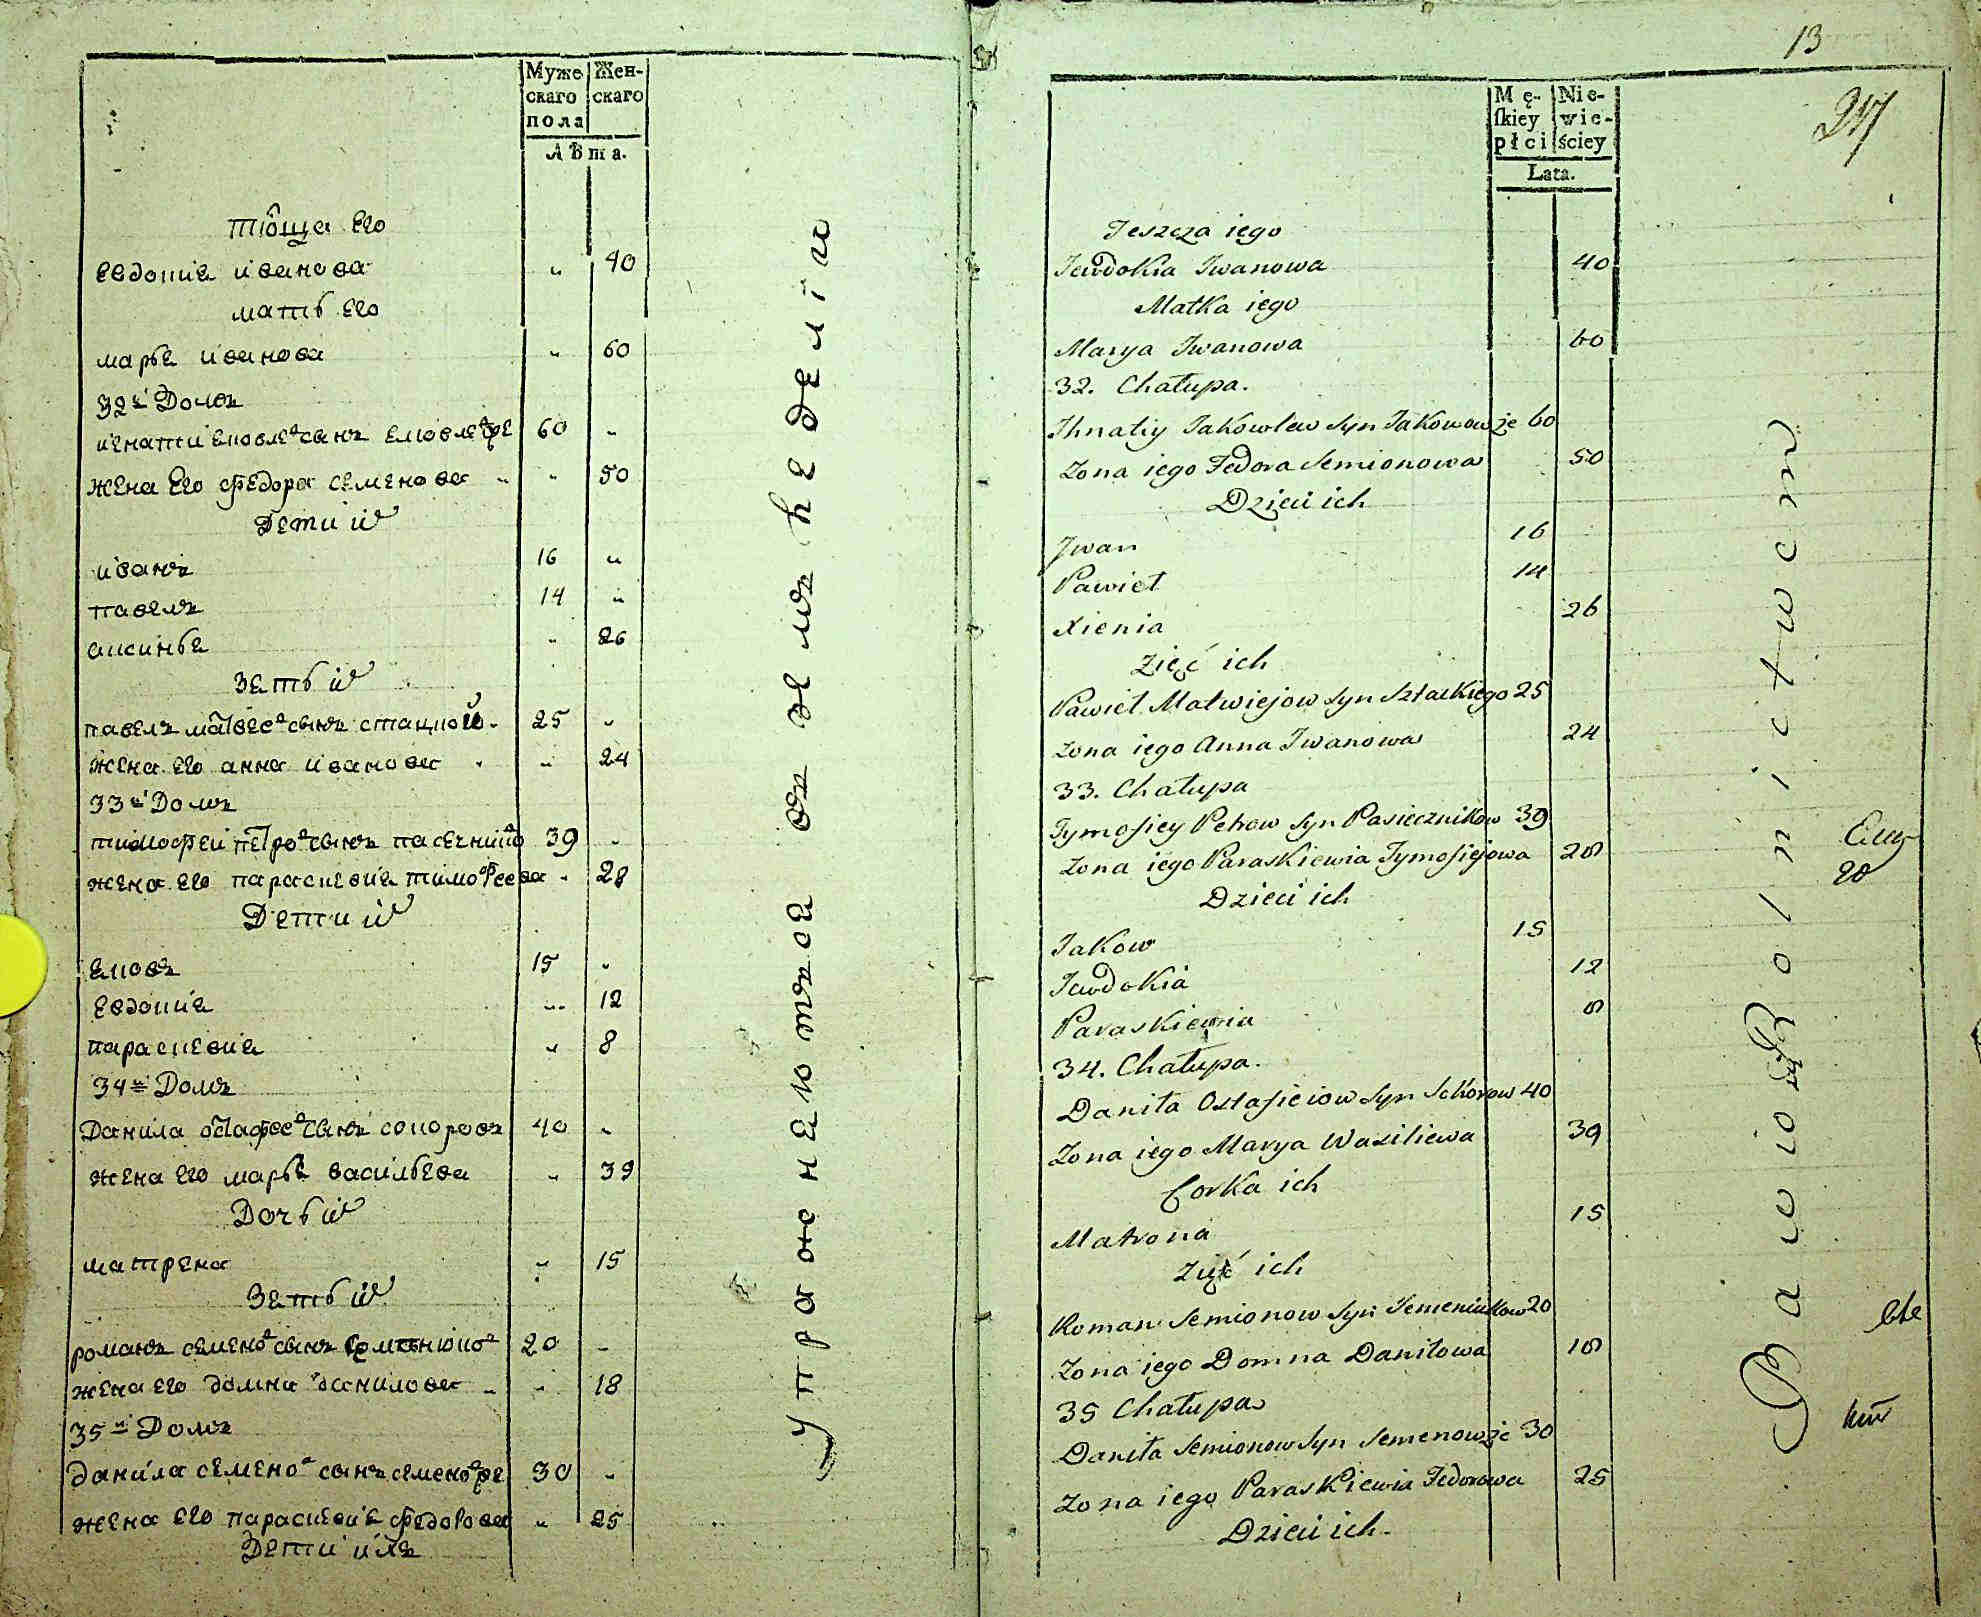 Муже
скаго
пола
Жен-
скаго
Лѣта.
тіоща его
евдокиа иванова „ 40
мать его
марья иванова „ 60
32й Домъ
игнати яковле сынъ яковле же 60 „
жена его федора семенова „ 50
Дети их
иванъ 16 „
павелъ 14 „
аксинья „ 26
зять их
павелъ матвее сынъ 25 „
жена его анна иванова „ 24
33й Домъ
тимофей петро сынъ пасечнико 39 „
жена его параскевиа тимофеева „ 28
Дети их
яковъ 15 „
евдокиа „ 12
параскевиа „ 8
34й Домъ
Данила остафее сынъ сокоровъ 40 „
жена его марья васильева „ 39
Дочь их
матрена „ 15
Зять их
романъ семено сынъ семенюко 20 „
жена его домна данилова „ 18
35й Домъ
данила семено сынъ семено же 30 „
жена его параскевия федорова „ 25
Дети ихъ
Упражнаютъса въ земъ неделіи
13
Mę-
ſkiey
płci
Nie-
wie-
ściey
Lata.
Teszcza iego
Jewdokia Iwanowa 40
Matka iego
Marya Iwanowa 60
32. Chałupa.
Ihnatiy Jakowlew Syn Jakowow że 60
Zona iego Fedora Semionowa 50
Dzieci ich
Iwan 16
Pawieł 14
Xienia 26
Zięć ich
Pawieł Matwiejow Syn 25
Zona iego Anna Iwanowa 24
33. Chałupa
Tymofiey Petrow Syn Pasiecznikow 39
Zona iego Paraskiewia Tymofiejowa 28
Dzieci ich
Jakow 15
Jewdokia 12
Paraskiewia 8
34. Chałupa.
Daniła Ostafieiow Syn Sokorow 40
Zona iego Marya Wasiliewa 39
Corka ich
Matrona 15
Zięć ich
Roman Semionow Syn Semeniukow 20
Zona iego Domna Daniłowa 18
35 Chałupa
Daniła Semionow Syn Semenow że 30
Zona iego Paraskiewia Fedorowa 25
Dzieci ich.
Bawią się Rolnictwem